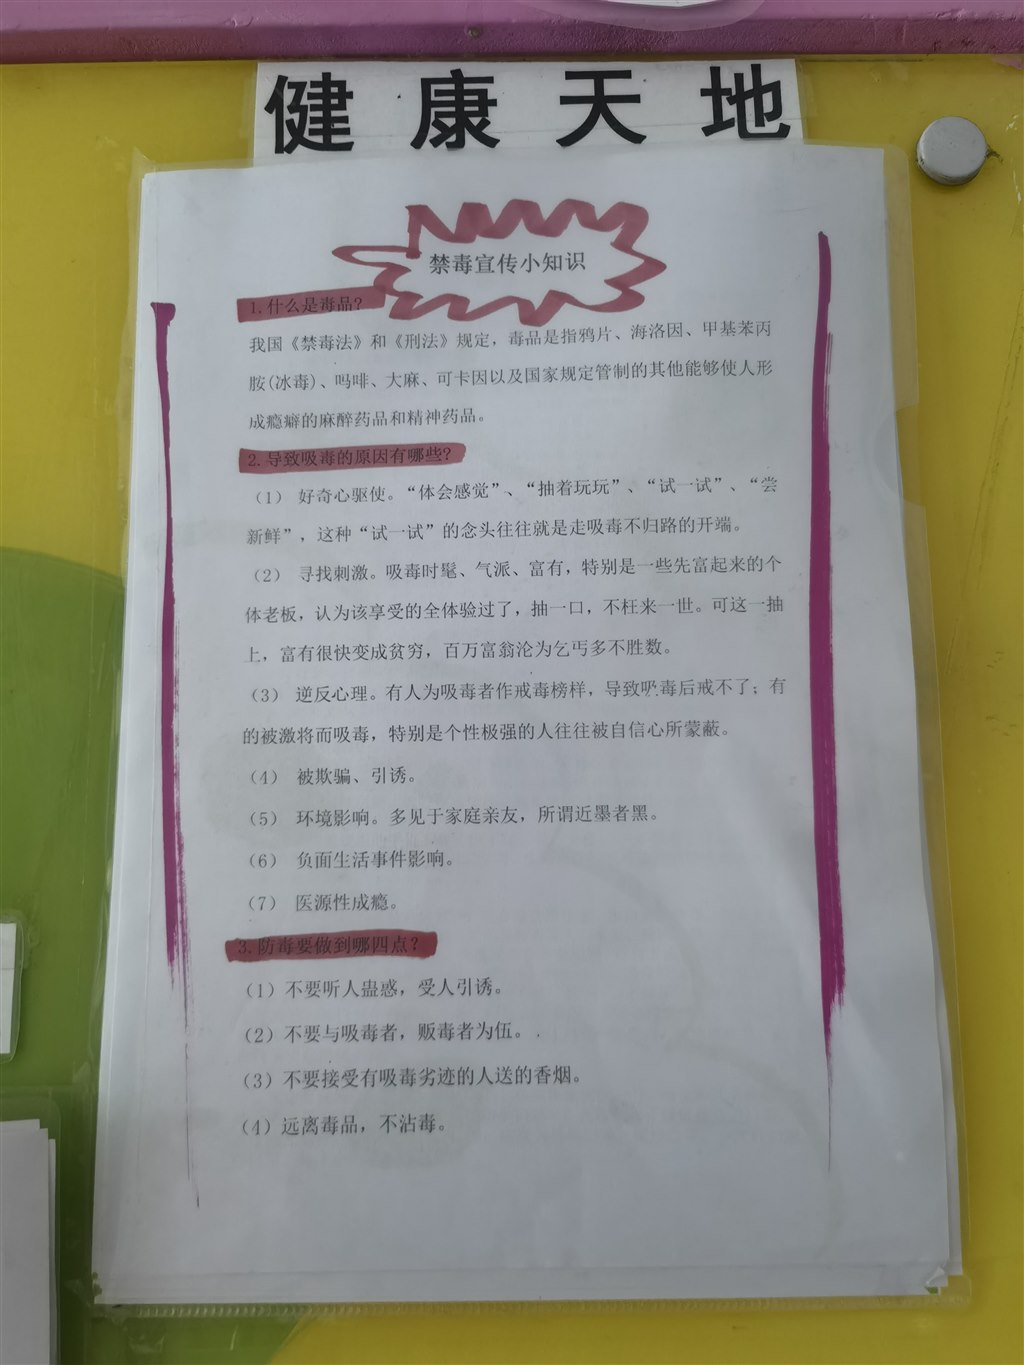 健康天地
禁毒宣传小知识
1.什么是毒品?
我国《禁毒法》和《刑法》规定，毒品是指鸦片、海洛因、甲基苯丙
胺(冰毒)、吗啡、大麻、可卡因以及国家规定管制的其他能够使人形
成瘾癖的麻醉药品和精神药品。
2.导致吸毒的原因有哪些?
（1） 好奇心驱使。“体会感觉”、“抽着玩玩”、“试一试”、“尝
新鲜”，这种“试一试”的念头往往就是走吸毒不归路的开端。
（2） 寻找刺激。吸毒时髦、气派、富有，特别是一些先富起来的个
体老板，认为该享受的全体验过了，抽一口，不枉来一世。可这一抽
上，富有很快变成贫穷，百万富翁沦为乞丐多不胜数。
（3） 逆反心理。有人为吸毒者作戒毒榜样，导致吸毒后戒不了；有
的被激将而吸毒，特别是个性极强的人往往被自信心所蒙蔽。
（4） 被欺骗、引诱。
（5） 环境影响。多见于家庭亲友，所谓近墨者黑。
（6） 负面生活事件影响。
（7） 医源性成瘾。
3.防毒要做到哪四点？
（1）不要听人蛊惑，受人引诱。
（2）不要与吸毒者，贩毒者为伍。
（3）不要接受有吸毒劣迹的人送的香烟。
（4）远离毒品，不沾毒。